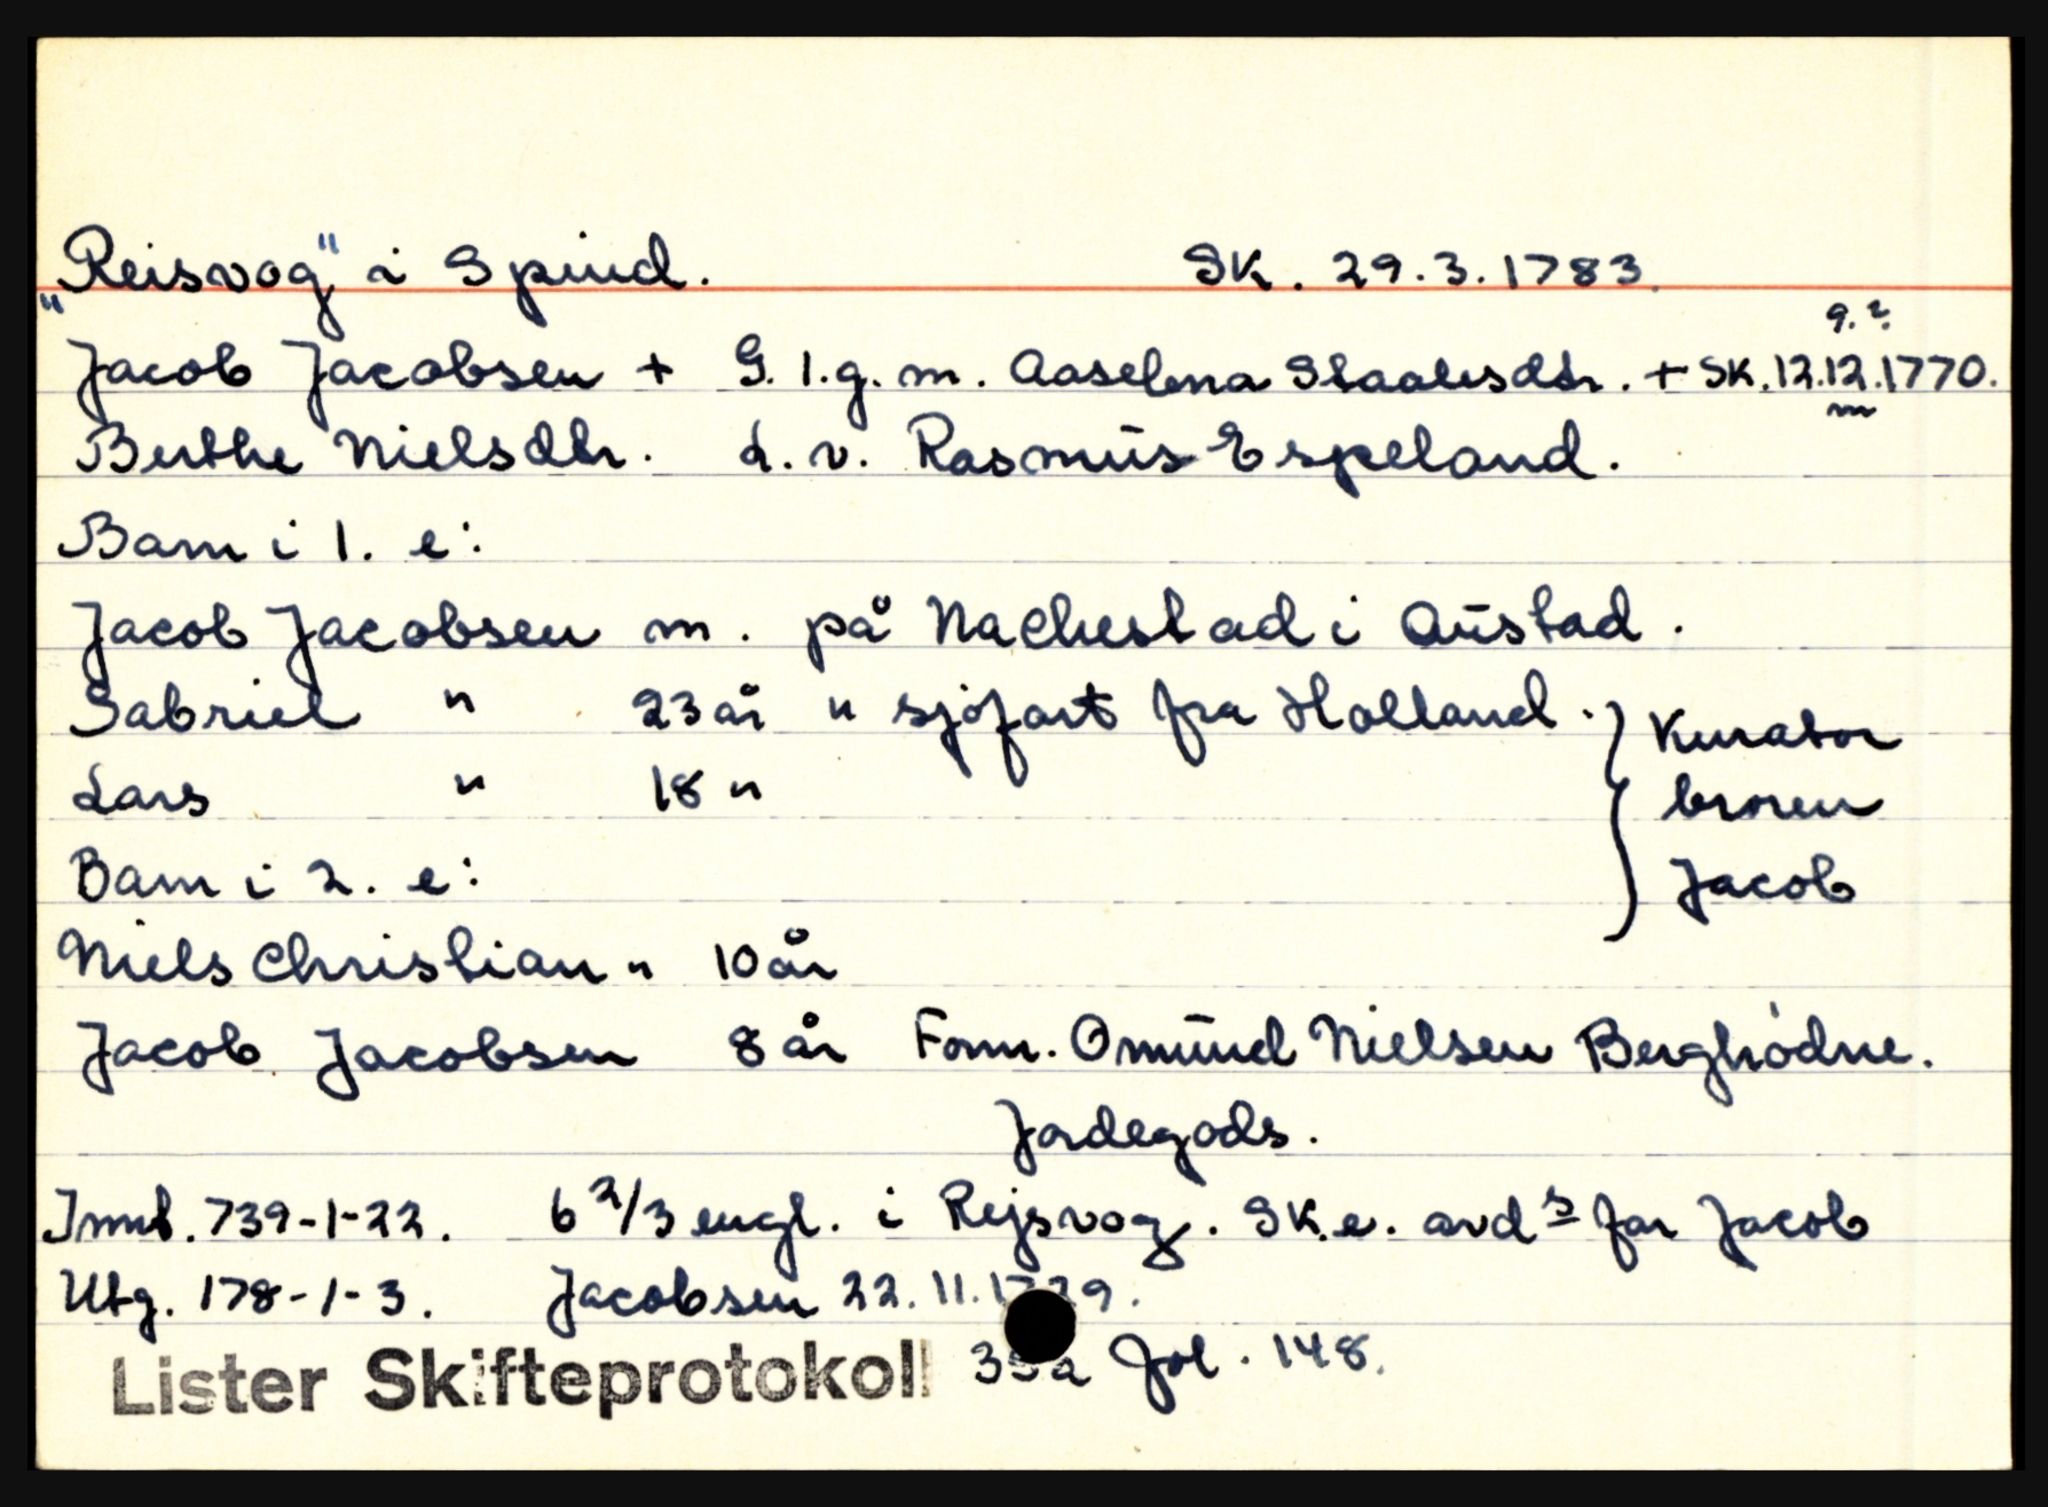 „Reisvog" i Spind. SK. 29.3.1783.
9.2.
Jacob Jacobsen + G. 1.g.m. Aaselena Staalesdtr. + SK.12.12.1770.
Berthe Nielsdtr. L.v. Rasmus Espeland.
Barn i 1. e:
Jacob Jacobsen m. på Nachestad i Austad.
Gabriel " 23 år " sjøfart fra Holland. } Kurator
Lars " 18 " broren
Barn i 2. e: Jacob
Niels Christian " 10 år
Jacob Jacobsen 8 år Form. Omund Nielsen Berghódne.
Jordegods.
Innb. 739-1-22. 6 2/3 engl. i Rejsvog. SK.e. avds far Jacob
Utg. 178-1-3. Jacobsen 22.11.
Lister Skifteprotokoll fol. 148.